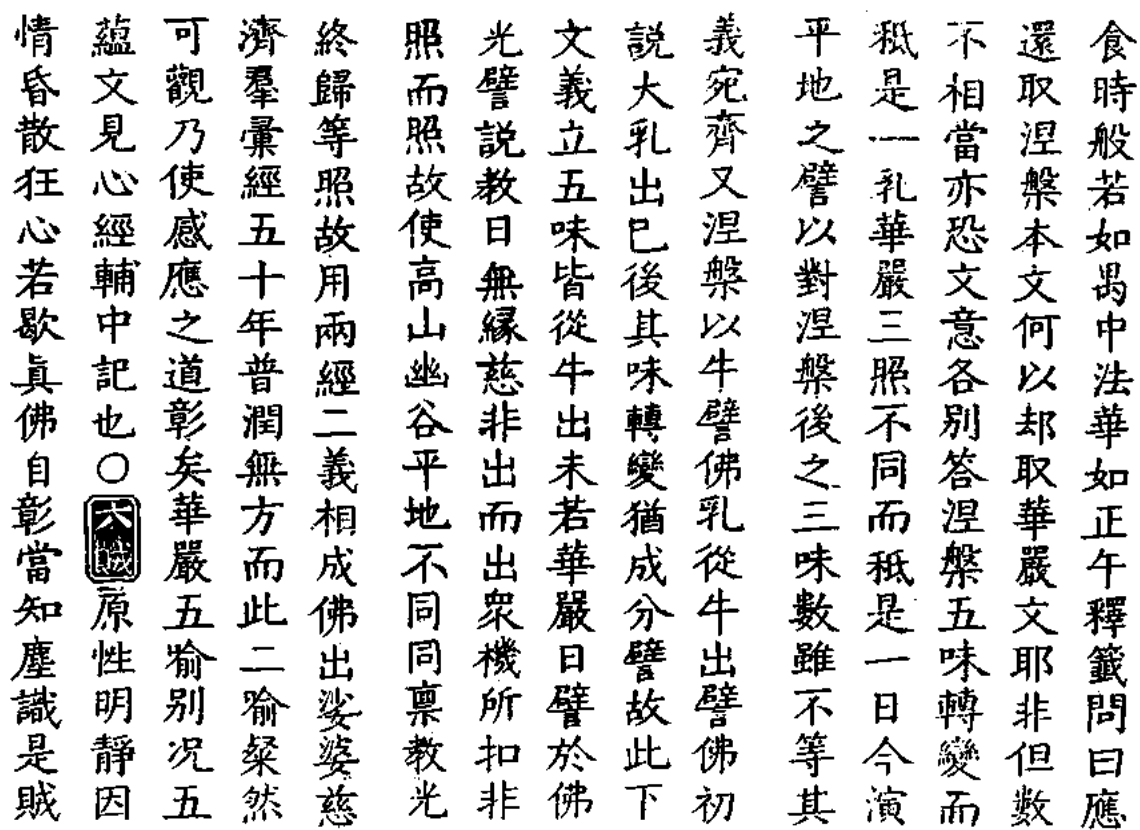 食時般若如禺中法華如正午釋籖問曰應
還取涅槃本文何以却取華嚴文耶非但數
不相當亦恐文意各別答涅槃五味轉變而
秖是一乳華嚴三照不同而秖是一日今演
平地之譬以對涅槃後之三味數雖不等其
義宛齊又涅槃以牛譬佛乳從牛出譬佛初
説大乳出巳後其味轉變猶成分譬故此下
文義立五味皆從牛出未若華嚴日譬於佛
光譬説教日無緣慈非出而出衆機所扣非
照而照故使高山幽谷平地不同同禀教光
終歸等照故用兩經二義相成佛出娑婆慈
濟羣彙經五十年普潤無方而此二喻粲然
可觀乃使感應之道彰矣華嚴五喻别况五
蘊文見心經輔中記也〇六賊原性明靜因
情昏散狂心若歇眞佛自彰當知塵識是賊